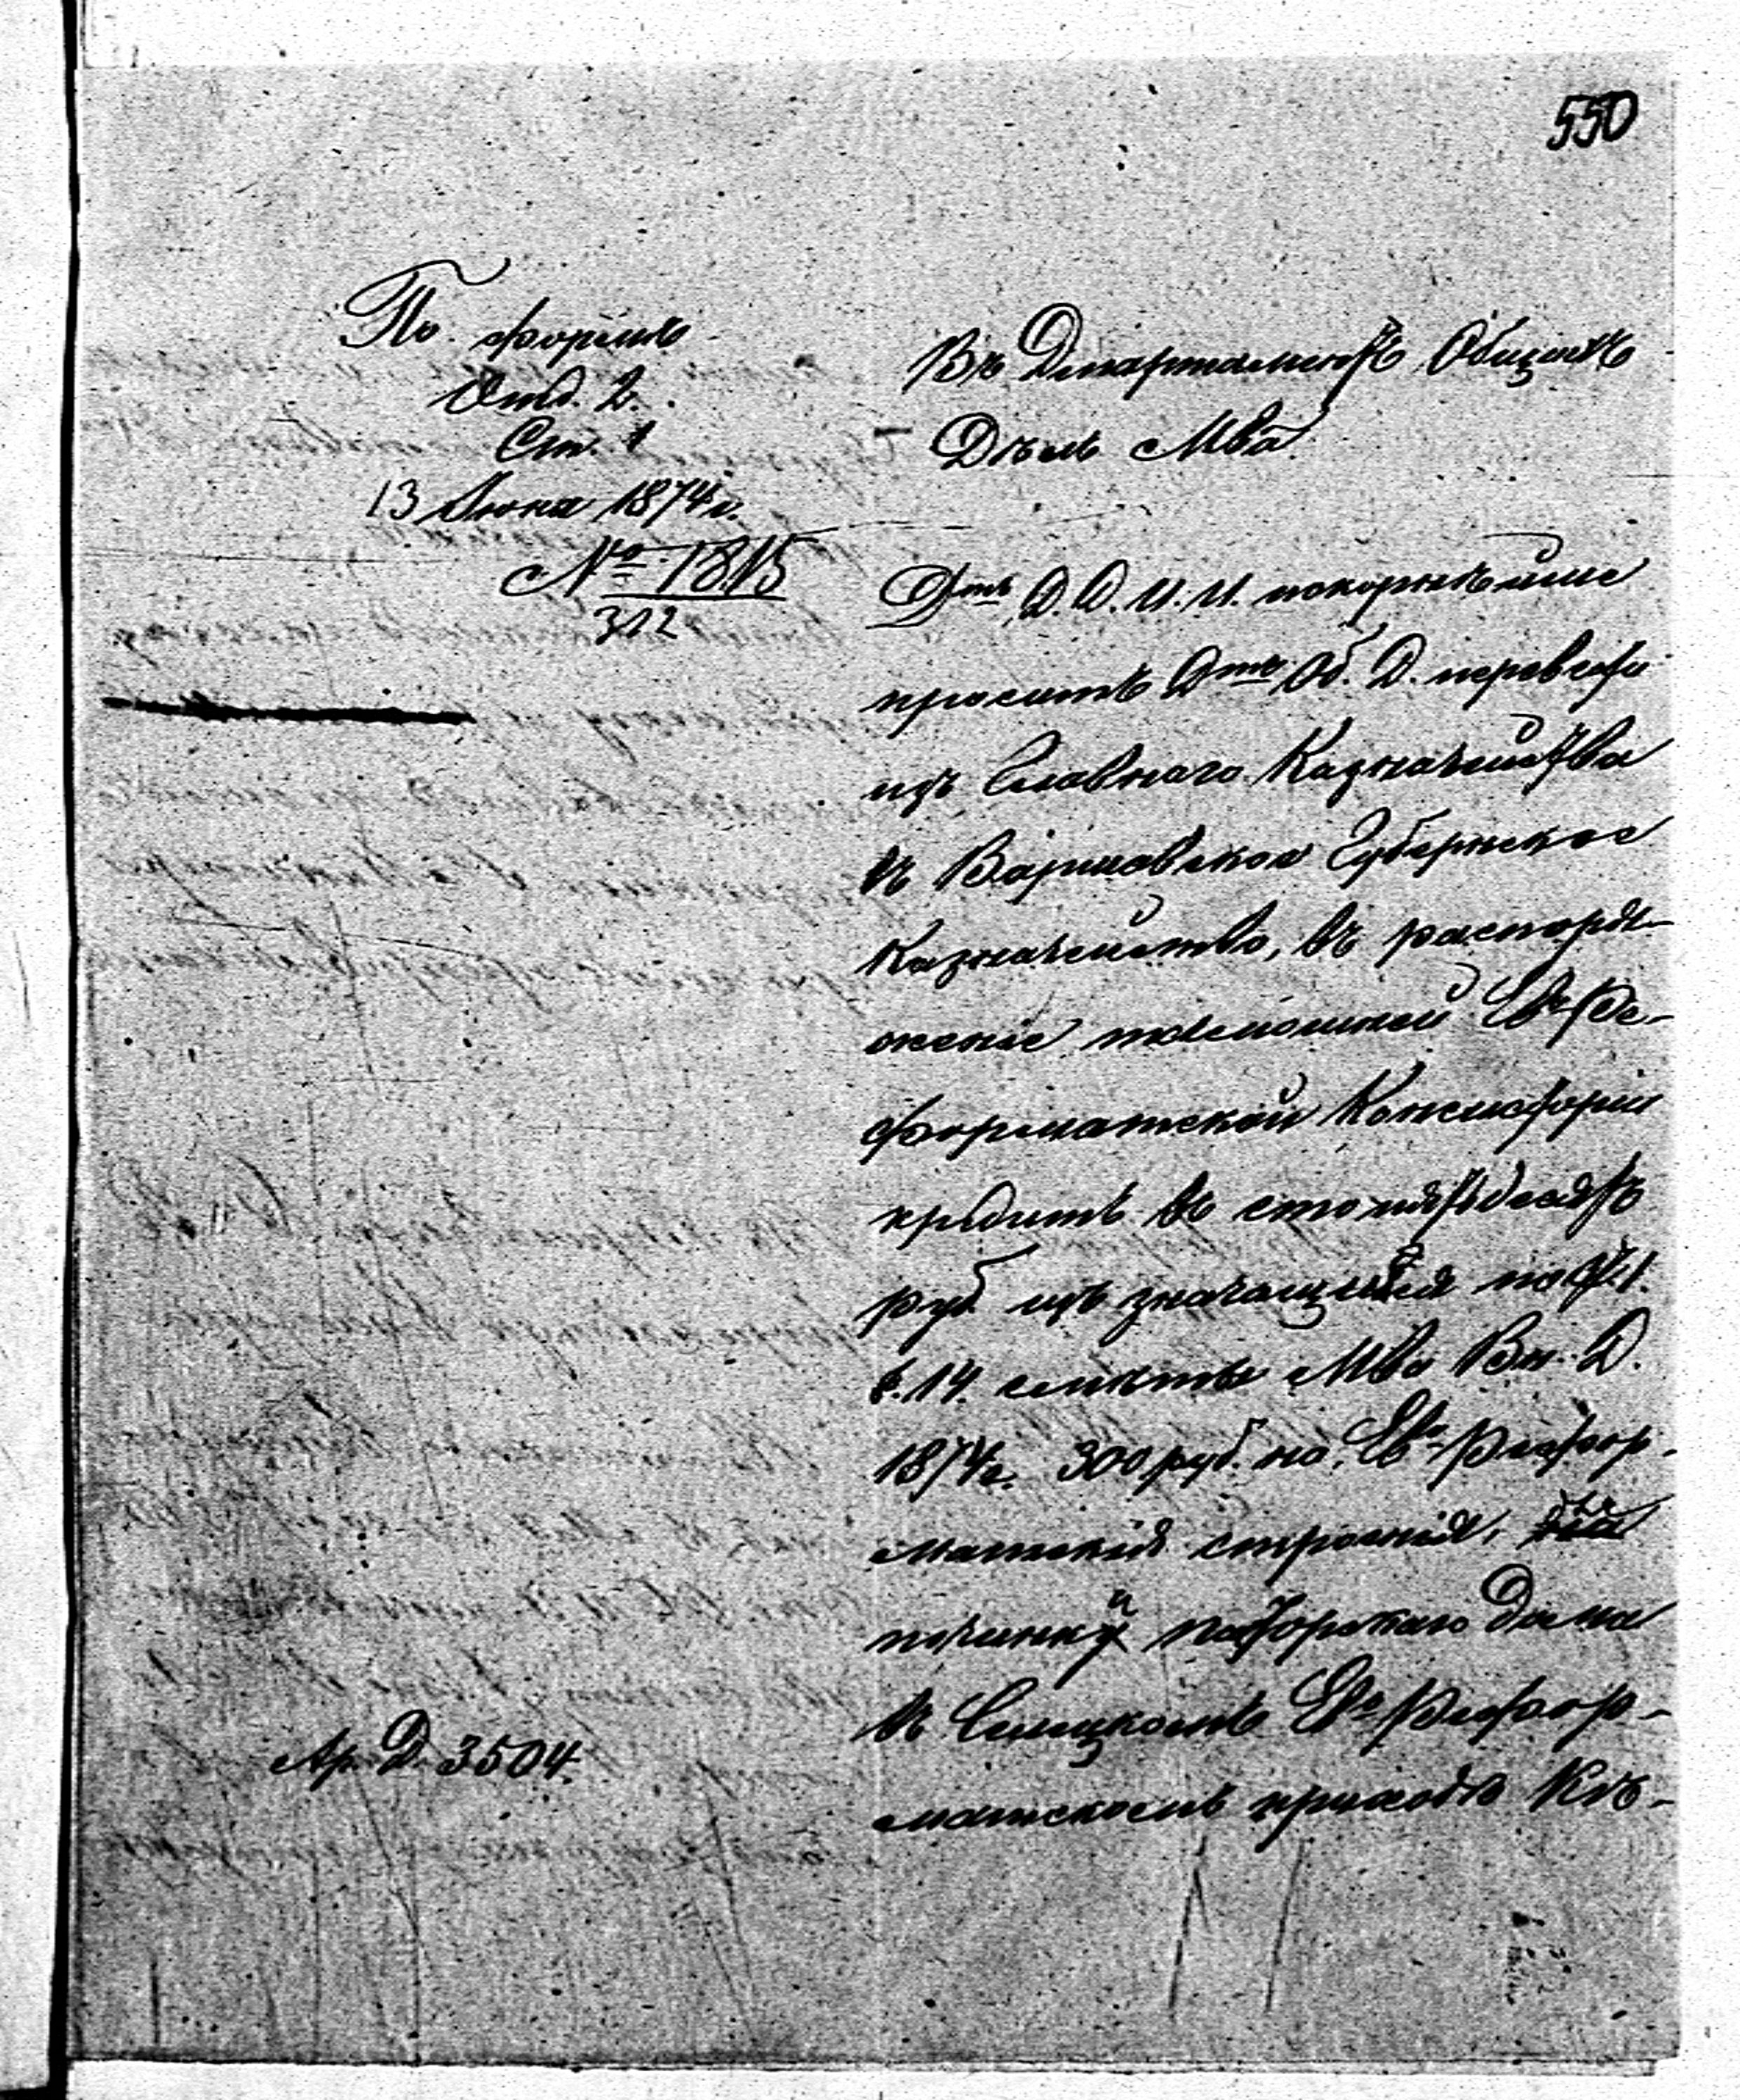 550
По формѣ
Отд. 2.
Ст. 1
13 Іюня 1874 г.
№ 1815
312
Въ Департаментъ Общихъ
Дѣлъ Мва.
Дтъ Д. Д. И. И. покорнѣйше
проситъ Дтъ Об. Д. перевести
изъ Главнаго Казначейства
въ Варшавское Губернское
Казначейство, въ распоря-
женіе тамошней Ев. Ре-
форматской Консисторіи
кредитъ въ сто пятьдесятъ
руб. изъ значащихся по ст. 1.
§. 14. смѣты Мва Вн. Д.
1874 г. 300 руб. на Ев. Рефор-
матскія строенія,
починки пасторскаго дома
въ Сѣлецкомъ Ев. Рефор-
матскомъ приходѣ Кѣ-
Ар. Д. 3504.